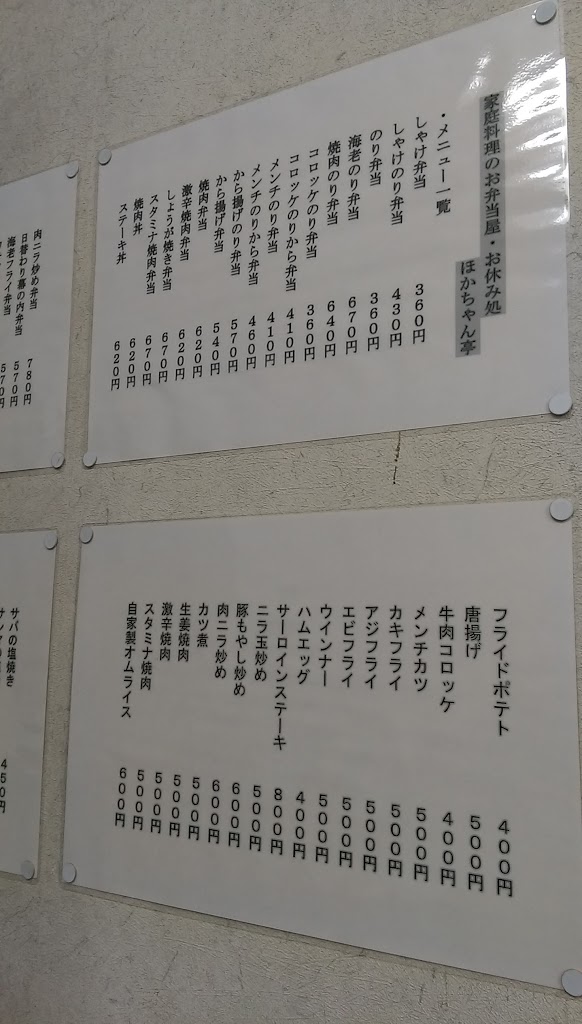 家庭料理のお弁当屋・お休み処
ほかちゃん亭
・メニュー一覧
しゃけ弁当 360円
しゃけのり弁当 430円
のり弁当 360円
海老のり弁当 670円
焼肉のり弁当 640円
コロッケのり弁当 360円
コロッケのりから弁当 410円
メンチのり弁当 410円
メンチのりから弁当 460円
から揚げのり弁当 570円
から揚げ弁当 540円
焼肉弁当 620円
激辛焼肉弁当 620円
しょうが焼き弁当 670円
スタミナ焼肉弁当 670円
焼肉丼 620円
ステーキ丼 620円
肉ニラ炒め弁当 780円
日替わり幕の内弁当 570円
海老フライ弁当 570円
フライドポテト 400円
唐揚げ 500円
牛肉コロッケ 400円
メンチカツ 500円
カキフライ 500円
アジフライ 500円
エビフライ 500円
ウインナー 500円
ハムエッグ 400円
サーロインステーキ 800円
ニラ玉炒め 500円
豚もやし炒め 600円
肉ニラ炒め 600円
カツ煮 500円
生姜焼肉 500円
激辛焼肉 500円
スタミナ焼肉 500円
自家製オムライス 600円
サバの塩焼き 450円